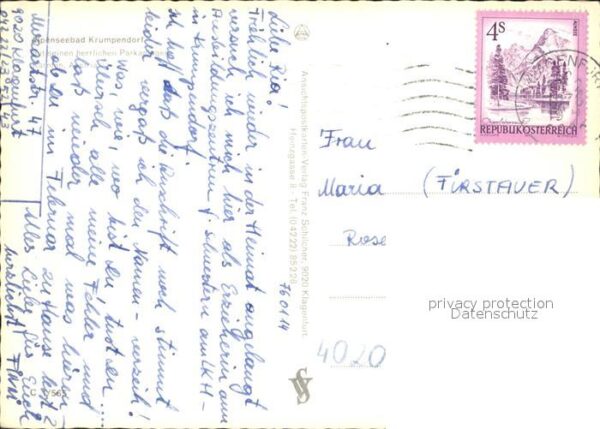 Alpenseebad Krumpendorf
einen herrlichen Parkanlagen
Liebe Ria!
Fröhlich wieder in der Heimat angelangt
versuch ich mich hier als Erzieherin am
Ausbildungszentrum f. Schwestern am LKH -
in Krumpendorf.
Ich hoff, daß die Anschrift noch stimmt
leider vergaß ich den Namen - verzeih!
Was, wie, wo bist du! tust du...
Wünsch alle meine Fehler und
laß wieder mal was hören -
ob du im Februar zu Hause bist?
Alles Liebe für Euch
herzlichst Finni
Marktstr. 47
9020 Klagenfurt
Ansichtspostkarten-Verlag Franz Schilcher, 9020 Klagenfurt
Henrzgasse 8 - Tel. (0 42 22) 85 2 28
76 0114
4 S
REPUBLIK ÖSTERREICH
Frau
Maria (FÜRSTAUER)
Rose
4020
privacy protection
Datenschutz